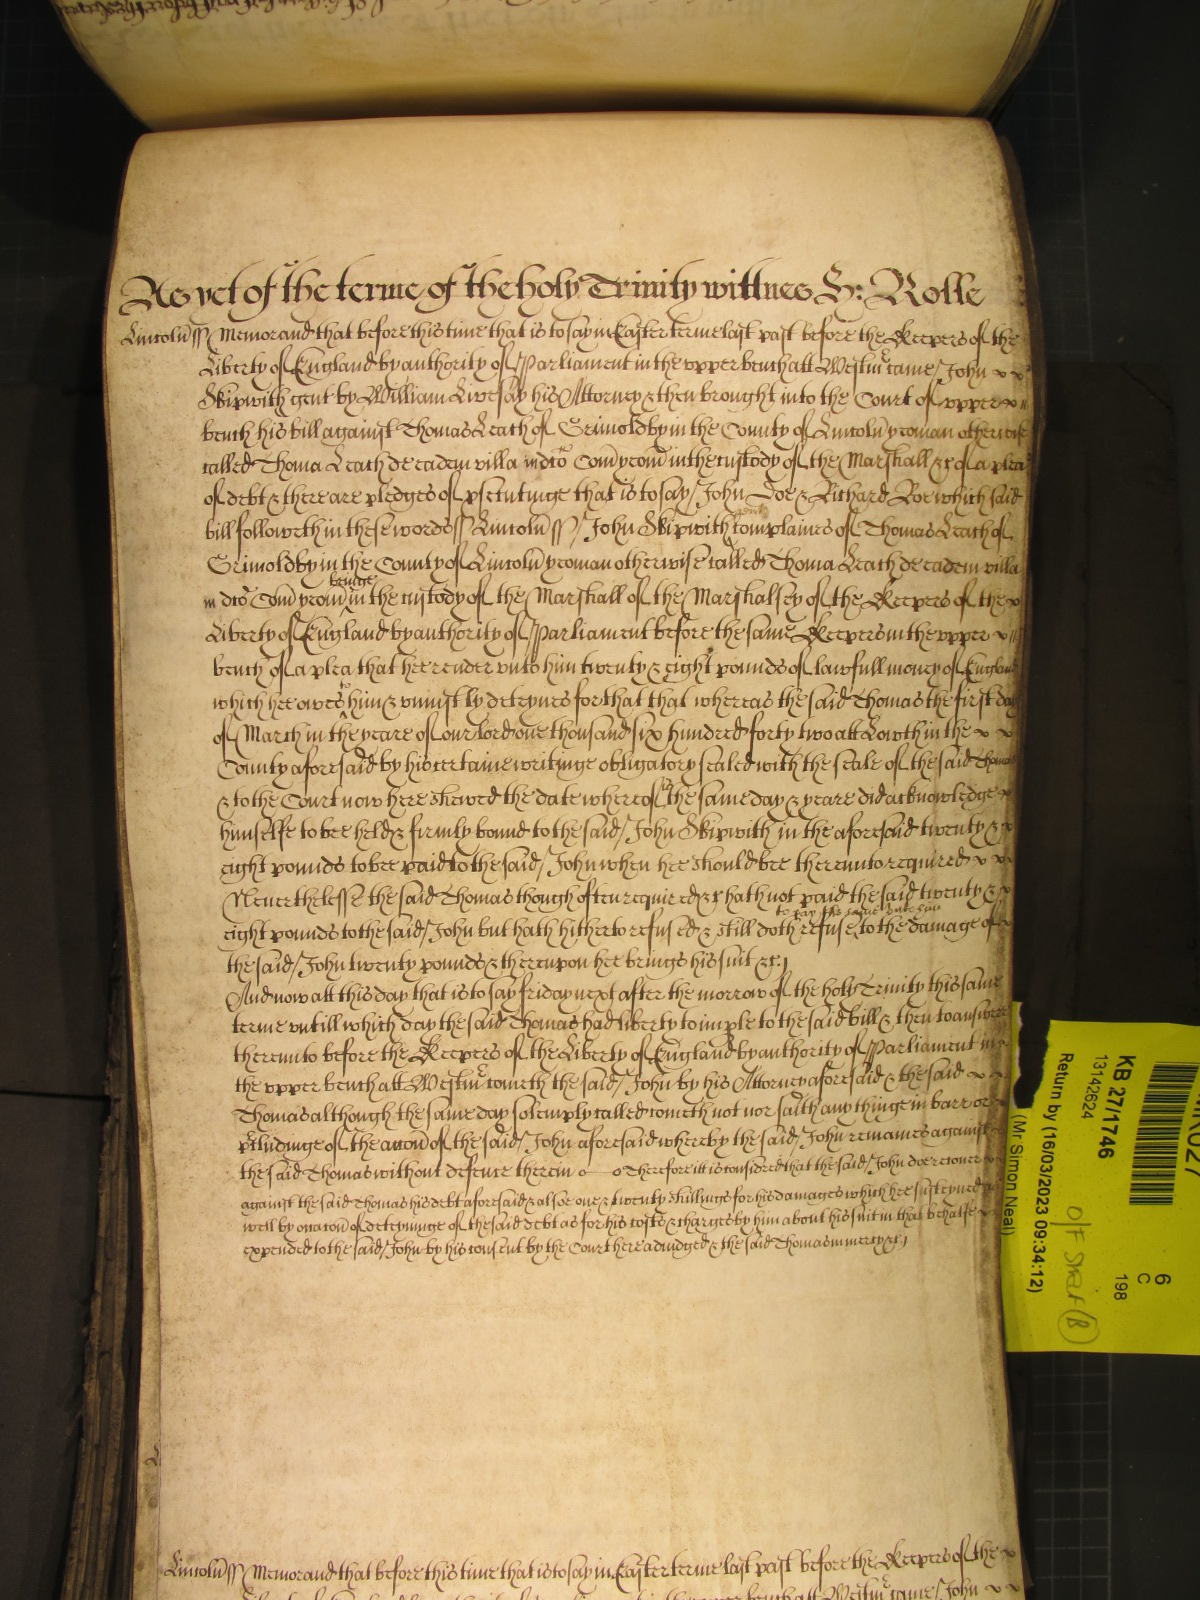 As yet of the terme of the holy Trinity wittnes H: Rolle
Lincoln ss Memorand that before this time that is to say in Easter terme last past before the Keepers of the
Liberty of England by authority of Parliament in the upper bench att Westmr came John
Skipwith gent by William Livesay his Attorney & then brought into the Court of upper
bench his bill against Thomas Leach of Grimoldby in the County of Lincoln yeoman otherwise
called Thoma Leach de eadem villa in dco Com yeom in the custody of the Marshall &c of a plea
of debt & there are pledges of psecutinge that is to say John Doe & Richard Roe which said
bill followeth in these words ss Lincoln ss John Skipwith gent complaines of Thomas Leach of
Grimoldby in the County of Lincoln yeoman otherwise called Thoma Leach de eadem villa
in dco Com yeom beinge in the custody of the Marshall of the Marshalsey of the Keepers of the
Liberty of England by authority of Parliament before the same Keepers in the upper
bench of a plea that hee render unto him twenty & eight pounds of lawfull money of England
which hee owes to him & uniustly deteynes for that that whereas the said Thomas the first day
of March in the yeare of our lord one thousand six hundred forty two att Lowth in the
County aforesaid by his certaine writinge obligatory sealed with the seale of the said Thomas
& to the Court now here shewed the date whereof is the same day & yeare did acknowledge
himselfe to bee held & firmly bound to the said John Skipwith in the aforesaid twenty &
eight pounds to bee paid to the said John when hee should bee thereunto required
Neverthelesse the said Thomas though often required &c hath not paid the said twenty &
eight pounds to the said John but hath hitherto refused & still doth refuse to pay the same unto him to the damage of
the said John twenty pounds & thereupon hee brings his suit &c
And now att this day that is to say friday next after the morrow of the holy Trinity this same
terme untill which day the said Thomas had liberty to imple to the said bill & then to answere
thereunto before the Keepers of the Liberty of England by authority of Parliament in
the upper bench att Westmr cometh the said John by his Attorney aforesaid & the said
Thomas although the same day solemply called cometh not nor saith any thinge in barr or
pcludinge of the accon of the said John aforesaid whereby the said John remaines against
the said Thomas without defence therein Therefore itt is considred that the said John doe recover
against the said Thomas his debt aforesaid & alsoe one & twenty shillings for his damages which hee susteyned as
well by occacon of deteyninge of the said debt as for his costs & charges by him about his suit in that behalfe
expended to the said John by his consent by the Court here adiudged & the said Thomas in mercy &c
Lincoln ss Memorand that before this time that is to say in Easter terme last past before the Keepers of the
upper bench att Westmr came John
KB 27/1746
13142624
Return by (16/03/2023 09:34:12)
(Mr Simon Neal)
6
C
198